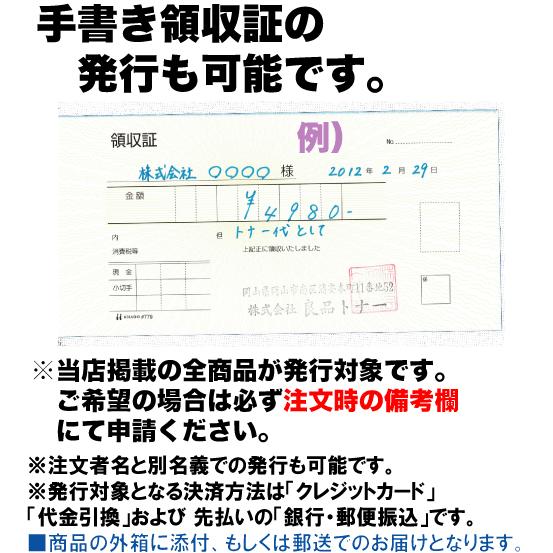 手書き領収証の
発行も可能です。
領収証
例)
No.
株式会社 〇〇〇〇 様
2012年2月29日
金額
¥4980-
内
但 トナー代として
消費税等
上記正に領収いたしました
現金
小切手
岡山県岡山市南区浦安本町11番地52
株式会社 良品トナー
※当店掲載の全商品が発行対象です。
ご希望の場合は必ず注文時の備考欄
にて申請ください。
※注文者名と別名義での発行も可能です。
※発行対象となる決済方法は「クレジットカード」
「代金引換」および 先払いの「銀行・郵便振込」です。
■商品の外箱に添付、もしくは郵送でのお届けとなります。